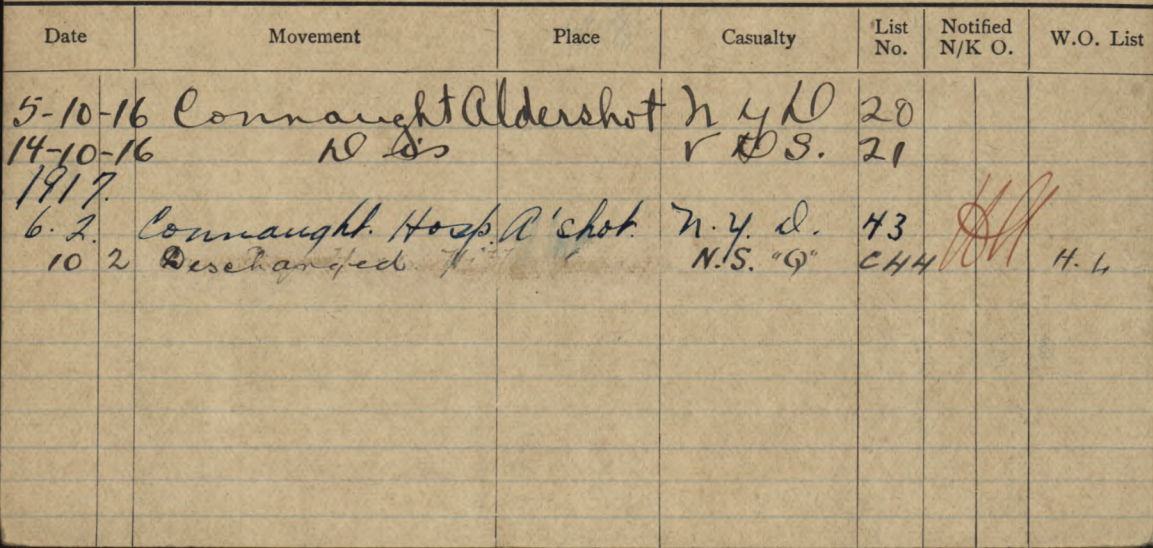 Date Movement Place Casualty List No. Notified N/K O. W.O. List
5-10-16 Connaught Aldershot N Y D 20
14-10-16 Dis V D S. 21
1917.
6.2. Connaught. Hosp. A'shot. N.Y.D. 43
10 2 Deschanged N.S. "Q" C44 H.L